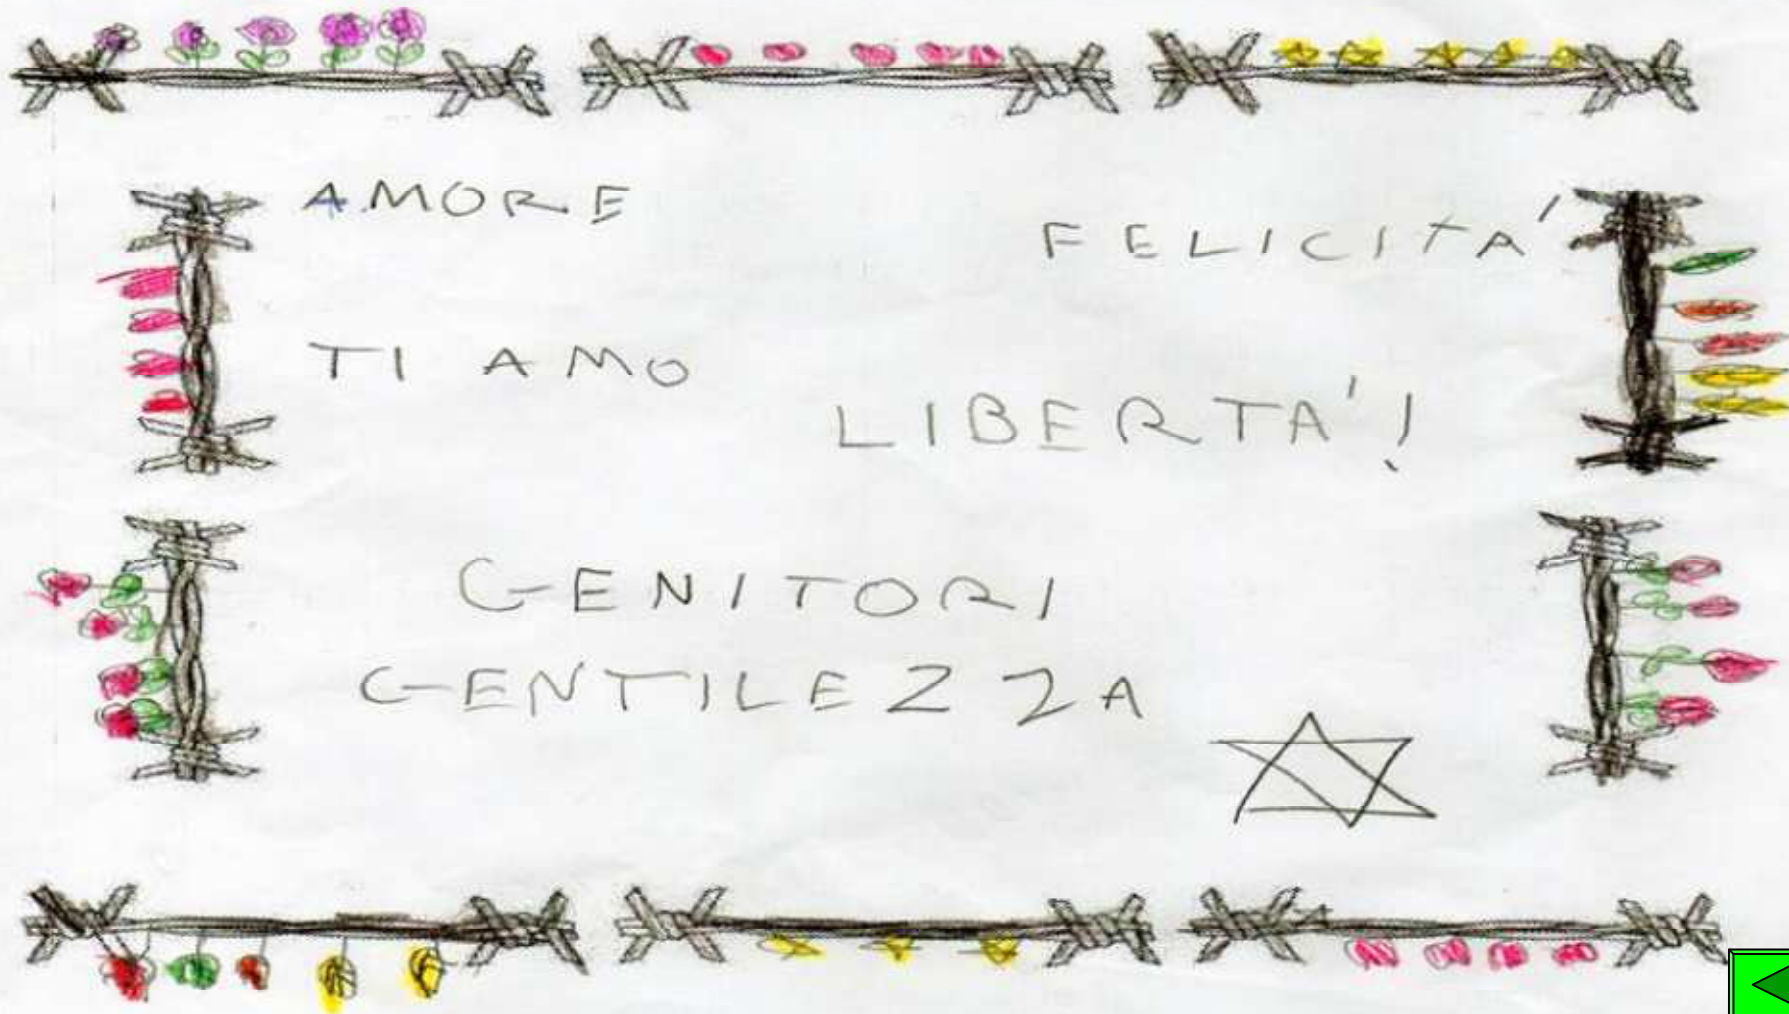 AMORE
FELICITA'
TI AMO
LIBERTA'!
GENITORI
GENTILEZZA